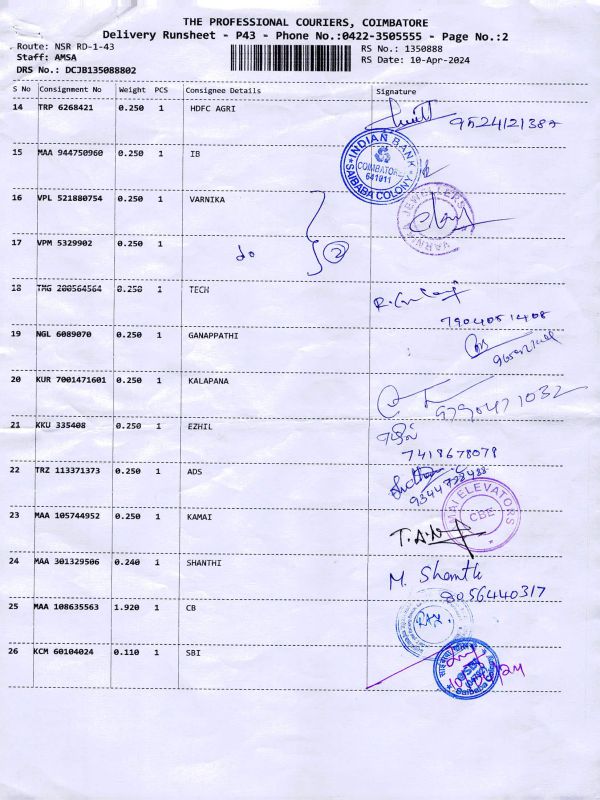 THE PROFESSIONAL COURIERS, COIMBATORE
Delivery Runsheet - P43 - Phone No.:0422-3505555 - Page No.:2
Route: NSR RD-1-43 RS No.: 1350888
Staff: AMSA RS Date: 10-Apr-2024
DRS No.: DCJB135088802
S No Consignment No Weight PCS Consignee Details Signature
14 TRP 6268421 0.250 1 HDFC AGRI
15 MAA 944750960 0.250 1 IB INDIAN BANK COIMBATORE 641011 SAIBABA COLONY
16 VPL 521880754 0.250 1 VARNIKA VARNIKA JEWELLERS
17 VPM 5329902 0.250 1 do 2
18 TMG 200564564 0.250 1 TECH
7904051408
19 NGL 6089070 0.250 1 GANAPPATHI
20 KUR 7001471601 0.250 1 KALAPANA 9790471032
21 KKU 335408 0.250 1 EZHIL எழில்
7418678079
22 TRZ 113371373 0.250 1 ADS
23 MAA 105744952 0.250 1 KAMAI ELEVATORS CBE
24 MAA 301329506 0.240 1 SHANTHI M. Shanthi
8056440317
25 MAA 108635563 1.920 1 CB
26 KCM 60104024 0.110 1 SBI